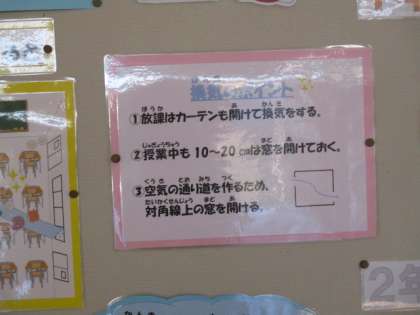 換気のポイント
①放課はカーテンも開けて換気をする。
②授業中も10〜20cmは窓を開けておく。
③空気の通り道を作るため、
対角線上の窓を開ける。
2年